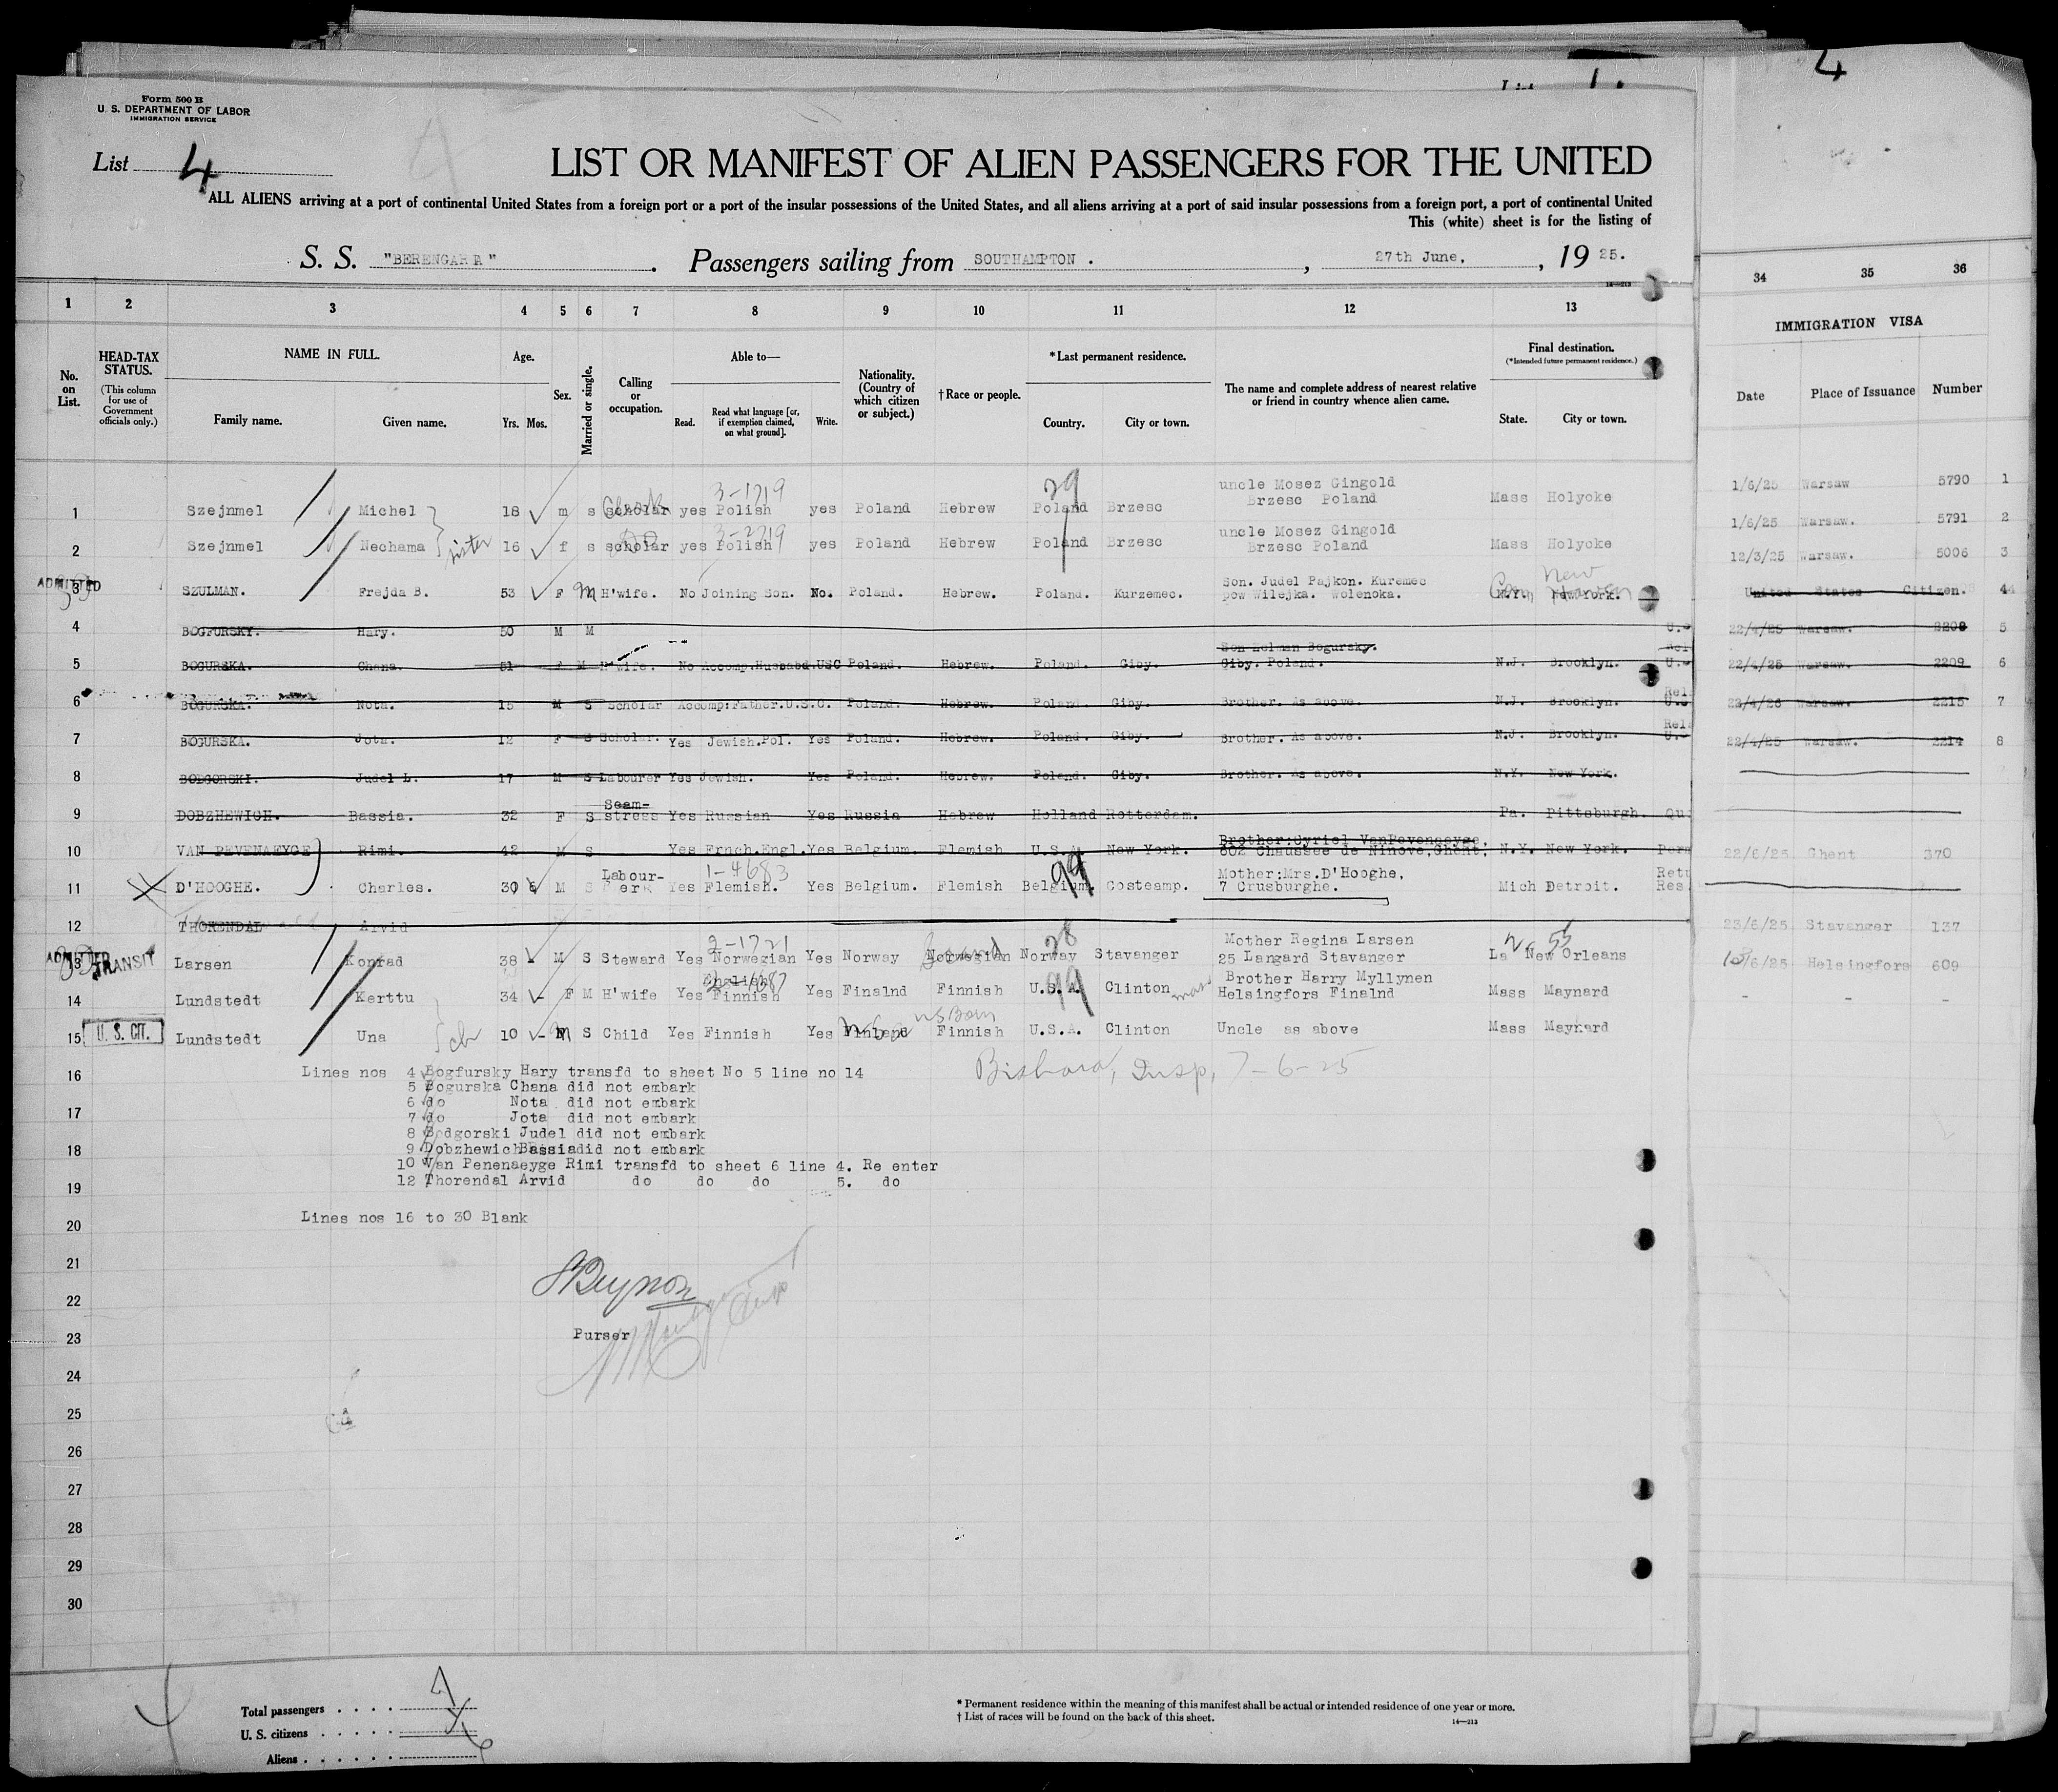 4
Form 500 B
U. S. DEPARTMENT OF LABOR
IMMIGRATION SERVICE
List 4
LIST OR MANIFEST OF ALIEN PASSENGERS FOR THE UNITED
ALL ALIENS arriving at a port of continental United States from a foreign port or a port of the insular possessions of the United States, and all aliens arriving at a port of said insular possessions from a foreign port, a port of continental United
This (white) sheet is for the listing of
S. S. "BERENGARIA" Passengers sailing from SOUTHAMPTON . , 27th June, , 19 25.
1 2 3 4 5 6 7 8 9 10 11 12 13 34 35 36
No. on List. HEAD-TAX STATUS. (This column for use of Government officials only.) NAME IN FULL. Family name. Given name. Age. Yrs. Mos. Sex. Married or single. Calling or occupation. Able to— Read. Read what language [or, if exemption claimed, on what ground]. Write. Nationality. (Country of which citizen or subject.) †Race or people. *Last permanent residence. Country. City or town. The name and complete address of nearest relative or friend in country whence alien came. Final destination. (*Intended future permanent residence.) State. City or town.
IMMIGRATION VISA
Date Place of Issuance Number
3-1719 29 uncle Mosez Gingold
1 Szejnmel Michel 18 m s scholar Clerk yes Polish yes Poland Hebrew Poland Brzesc Brzesc Poland Mass Holyoke 1/6/25 Warsaw 5790 1
uncle Mosez Gingold
2 Szejnmel Nechama sister 16 f s scholar yes Polish yes Poland Hebrew Poland Brzesc Brzesc Poland Mass Holyoke 1/6/25 Warsaw. 5791 2
12/3/25 Warsaw. 5006 3
ADMITTED Son. Judel Pajkon. Kuremec New
3 SZULMAN. Frejda B. 53 F M H'wife. No Joining Son. No. Poland. Hebrew. Poland. Kurzemec. pow Wilejka. Wolenoka. N.Y. New York. Conn Haven United States Citizen. 4
4 BOGFURSKY. Hary. 50 M M 22/4/25 Warsaw. 2208 5
Son Zelman Bogursky.
5 BOGURSKA. Chana. 51 F M H'wife. No Accomp.Husband.USC Poland. Hebrew. Poland. Giby. Giby. Poland. N.J. Brooklyn. 22/4/25 Warsaw. 2209 6
6 BOGURSKA. Nota. 15 M S Scholar Accomp:Father.U.S.C. Poland. Hebrew. Poland. Giby. Brother. As above. N.J. Brooklyn. Warsaw. 2215 7
7 BOGURSKA. Jota. 12 F S Scholar. Yes Jewish.Pol. Yes Poland. Hebrew. Poland. Giby. Brother. As above. N.J. Brooklyn. 22/4/25 Warsaw. 2214 8
8 BODGORSKI. Judel L. 17 M S Labourer Yes Jewish. Yes Poland. Hebrew. Poland. Giby. Brother. As above. N.Y. New York.
9 DOBZHEWICH. Bassia. 32 F S Seam-stress Yes Russian Yes Russia Hebrew Holland Rotterdam. Pa. Pittsburgh.
Brother:Cyriel VanPevenaeyge,
10 VAN PEVENAEYGE Rimi. 42 M S Yes Frnch.Engl. Yes Belgium. Flemish U.S.A. New York. 602 Chaussee de Ninove,Ghent. N.Y. New York. 22/6/25 Ghent 370
1-4683 99 Mother:Mrs.D'Hooghe,
11 D'HOOGHE. Charles. 30 M S Labour-er Yes Flemish. Yes Belgium. Flemish Belgium. Costeamp. 7 Crusburghe. Mich Detroit.
12 THORENDAL Arvid 23/6/25 Stavanger 137
ADMITTED TRANSIT 2-1721 28 Mother Regina Larsen
13 Larsen Konrad 38 M S Steward Yes Norwegian Yes Norway Norwegian Norway Stavanger 25 Langard Stavanger La New Orleans /6/25 Helsingfors 609
English 99 Brother Harry Myllynen
14 Lundstedt Kerttu 34 F M H'wife Yes Finnish Yes Finalnd Finnish U.S.A. Clinton Mass Helsingfors Finalnd Mass Maynard
US Born
15 U. S. CIT. Lundstedt Una 10 M S Child Yes Finnish Yes Finland Finnish U.S.A. Clinton Uncle as above Mass Maynard
16 Lines nos 4 Bogfursky Hary transfd to sheet No 5 line no 14 Insp, 7-6-25
5 Bogurska Chana did not embark
6 do Nota did not embark
17 7 do Jota did not embark
8 Bodgorski Judel did not embark
18 9 Dobzhewich Bassia did not embark
10 Van Penenaeyge Rimi transfd to sheet 6 line 4. Re enter
19 12 Thorendal Arvid do do do 5. do
20 Lines nos 16 to 30 Blank
21
22
23 Purser
24
25
26
27
28
29
30
Total passengers
U. S. citizens
Aliens
* Permanent residence within the meaning of this manifest shall be actual or intended residence of one year or more.
† List of races will be found on the back of this sheet. 14—213